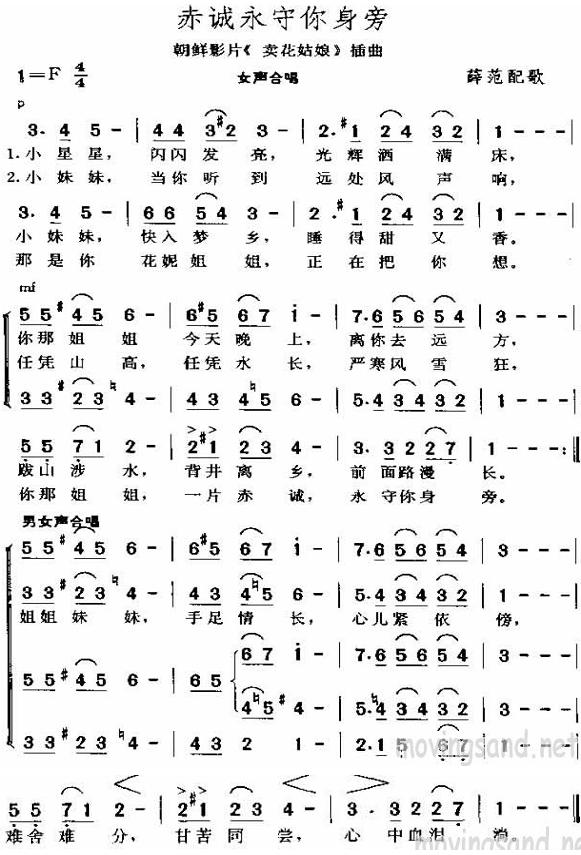 赤诚永守你身旁
朝鲜影片《卖花姑娘》插曲
1=F 4/4 女声合唱 薛范配歌
p
3. 4 5 - | 4 4 #3 2 3 - | 2. #1 2 4 3 2 | 1 - - - |
1.小星星，闪闪发亮，光辉洒满床，
2.小妹妹，当你听到远处风声响，
3. 4 5 - | 6 6 5 4 3 - | 2. #1 2 4 3 2 | 1 - - - |
小妹妹，快入梦乡，睡得甜又香。
那是你花妮姐姐，正在把你想。
mf
5 5 #4 5 6 - | 6 #5 6 7 i - | 7. 6 5 6 5 4 | 3 - - - |
你那姐姐今天晚上，离你去远方，
任凭山高，任凭水长，严寒风雪狂，
3 3 #2 3 ♮4 - | 4 3 4 5 6 - | 5. 4 3 4 3 2 | 1 - - - |
5 5 7 1 2 - | 2 #1 2 3 4 - | 3. 3 2 2 7 | 1 - - - :||
跋山涉水，背井离乡，前面路漫长。
你那姐姐，一片赤诚，永守你身旁。
男女声合唱
5 5 #4 5 6 - | 6 #5 6 7 i - | 7. 6 5 6 5 4 | 3 - - - |
3 3 #2 3 ♮4 - | 4 3 4 5 6 - | 5. 4 3 4 3 2 | 1 - - - |
姐姐妹妹，手足情长，心儿紧依傍，
6 7 i - | 7. 6 5 6 5 4 | 3 - - - |
5 5 #4 5 6 - | 6 5
♮4 #5 4 - | 5. 4 3 4 3 2 | 1 - - - |
3 3 #2 3 ♮4 - | 4 3 2 3 4 - | 2. 1 5 6 7 | 1 - - - |
movingsand.net
5 5 7 1 2 - | 2 #1 2 3 4 - | 3. 3 2 2 7 | 1 - - - |
难舍难分，甘苦同尝，心中血泪淌。
movingsand.net